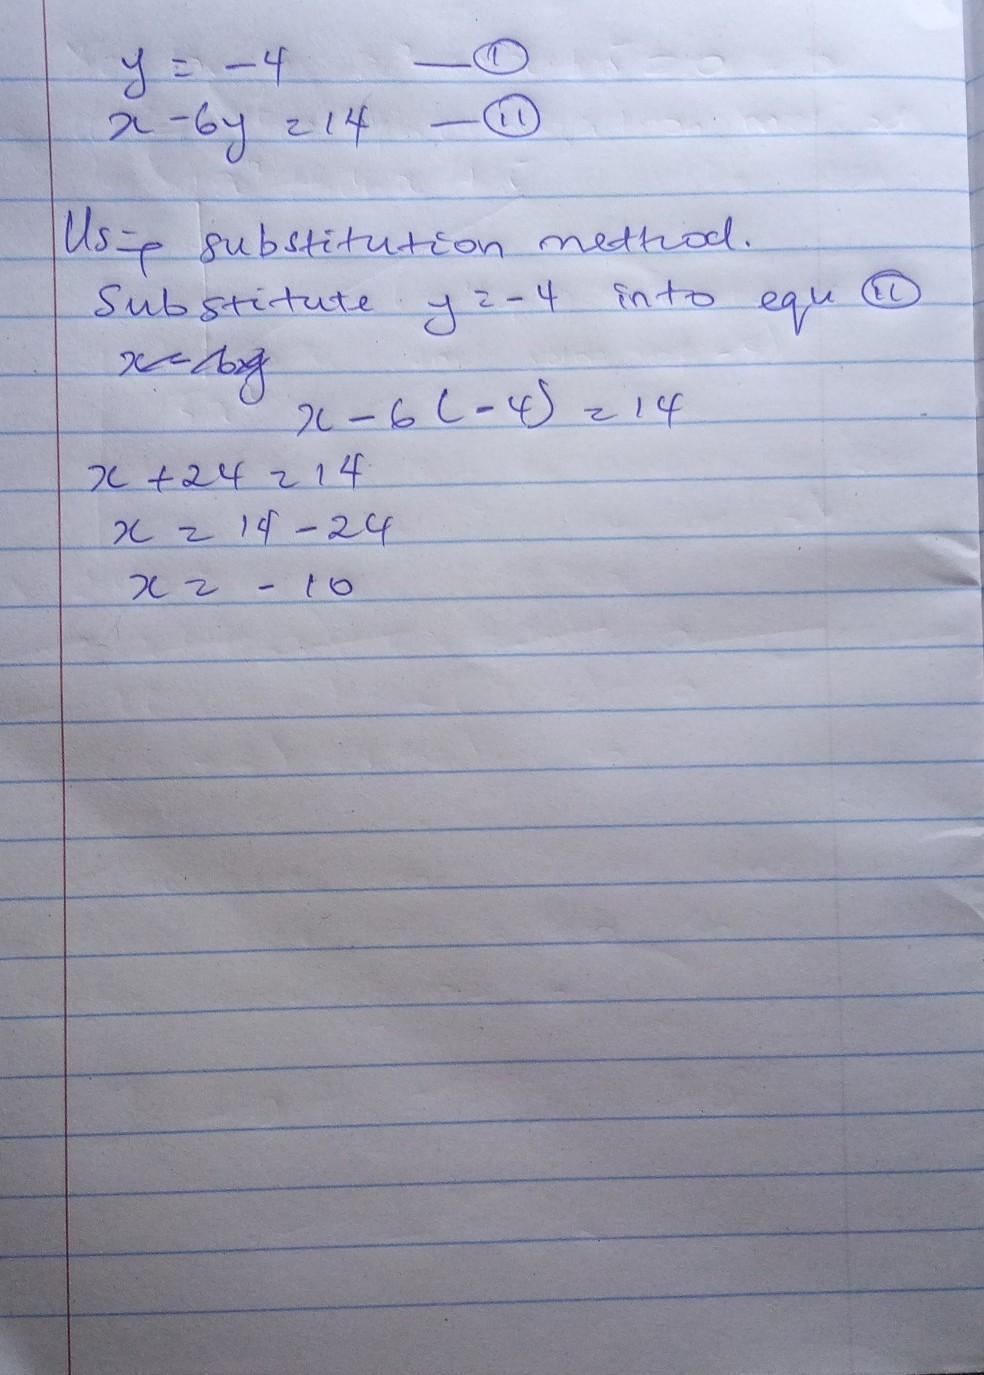 y = -4 —(i)
x - 6y = 14 —(ii)
Using substitution method.
Substitute y = -4 into equ (ii)
x - 6(-4) = 14
x + 24 = 14
x = 14 - 24
x = -10